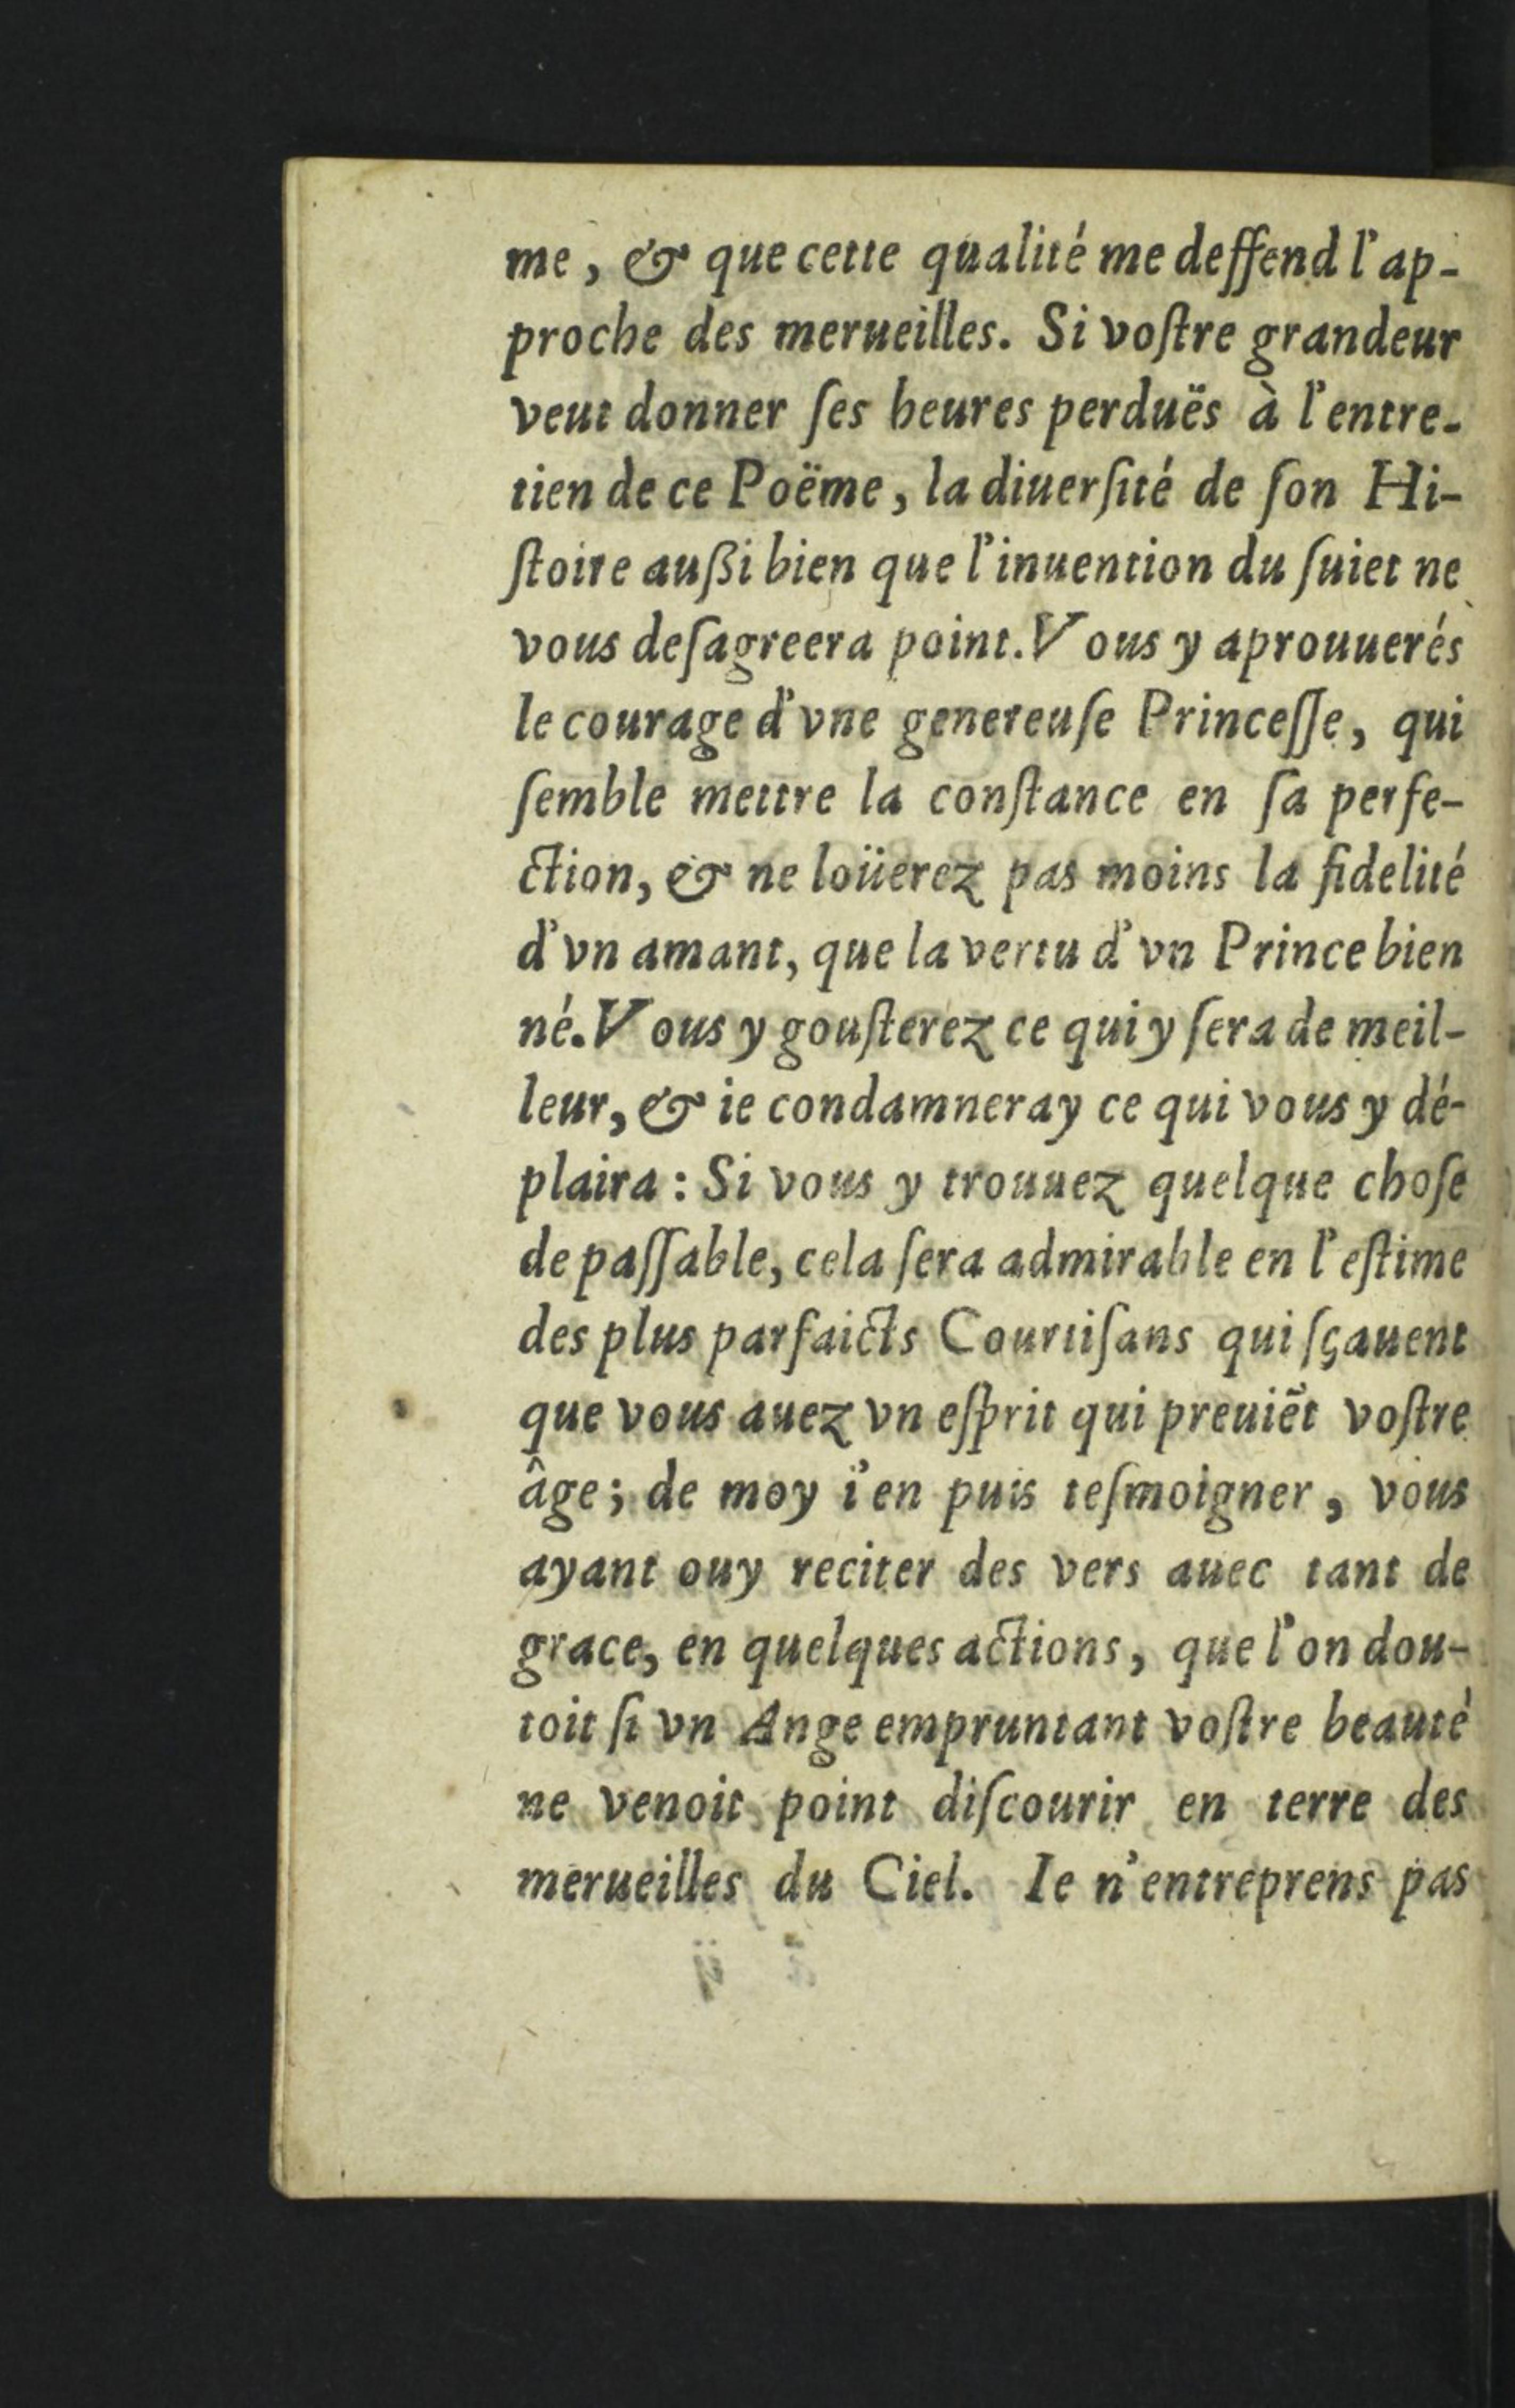 me, & que cette qualité me deffend l'ap-
proche des merueilles. Si voſtre grandeur
veut donner ſes heures perduës à l'entre-
tien de ce Poëme, la diuerſité de ſon Hi-
ſtoire außi bien que l'inuention du ſuiet ne
vous deſagreera point. Vous y aprouuerés
le courage d'vne genereuſe Princeſſe, qui
ſemble mettre la conſtance en ſa perfe-
ction, & ne loüerez pas moins la fidelité
d'vn amant, que la vertu d'vn Prince bien
né. Vous y gouſterez ce qui y ſera de meil-
leur, & ie condamneray ce qui vous y dé-
plaira : Si vous y trouuez quelque choſe
de paſſable, cela ſera admirable en l'eſtime
des plus parfaicts Courtiſans qui ſçauent
que vous auez vn eſprit qui preuiẽt voſtre
âge; de moy i'en puis teſmoigner, vous
ayant ouy reciter des vers auec tant de
grace, en quelques actions, que l'on dou-
toit ſi vn Ange empruntant voſtre beauté
ne venoit point diſcourir en terre des
merueilles du Ciel. Ie n'entreprens pas